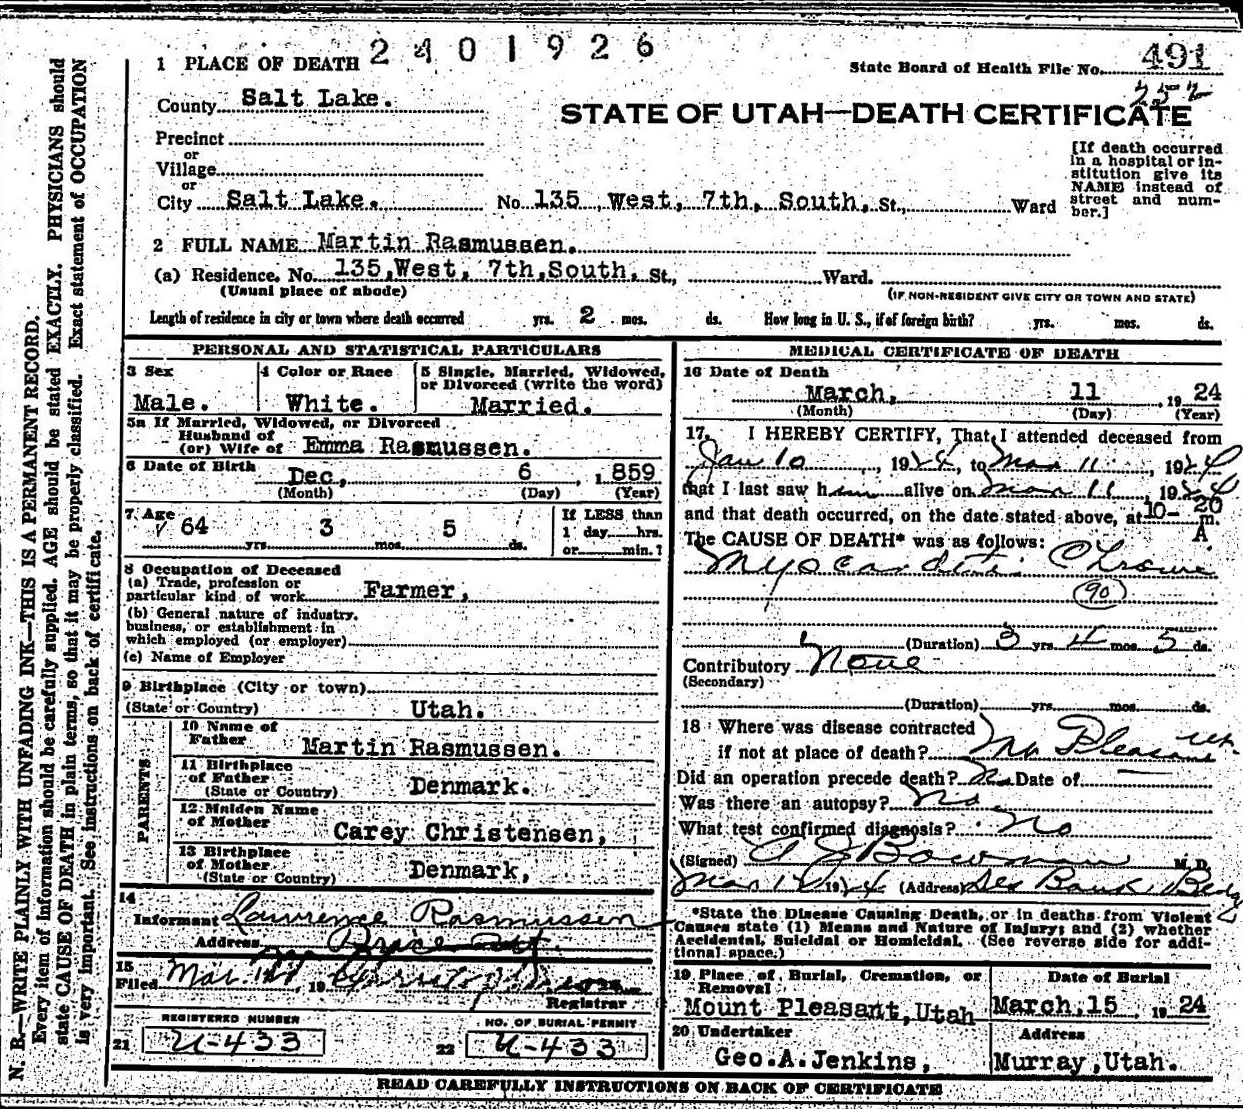 2401926
1 PLACE OF DEATH
State Board of Health File No. 491
252
County Salt Lake.
STATE OF UTAH—DEATH CERTIFICATE
Precinct
or
Village
or
City Salt Lake. No. 135, West, 7th, South, St., Ward
[If death occurred in a hospital or in-
stitution give its
NAME instead of
street and num-
ber.]
2 FULL NAME Martin Rasmussen.
(a) Residence, No. 135, West, 7th, South, St., Ward.
(Usual place of abode) (IF NON-RESIDENT GIVE CITY OR TOWN AND STATE)
Length of residence in city or town where death occurred yrs. 2 mos. ds. How long in U. S., if of foreign birth? yrs. mos. ds.
PERSONAL AND STATISTICAL PARTICULARS
3 Sex Male.
4 Color or Race White.
5 Single, Married, Widowed,
or Divorced (write the word)
Married.
5a If Married, Widowed, or Divorced
Husband of
(or) Wife of Emma Rasmussen.
6 Date of Birth Dec, 6, 1859
(Month) (Day) (Year)
7 Age 64 yrs. 3 mos. 5 ds.
If LESS than
1 day hrs.
or min.?
8 Occupation of Deceased
(a) Trade, profession or
particular kind of work Farmer,
(b) General nature of industry,
business, or establishment in
which employed (or employer)
(c) Name of Employer
9 Birthplace (City or town)
(State or Country) Utah.
PARENTS
10 Name of
Father Martin Rasmussen.
11 Birthplace
of Father
(State or Country) Denmark.
12 Maiden Name
of Mother Carey Christensen,
13 Birthplace
of Mother
(State or Country) Denmark,
14
Informant Lawrence Rasmussen
Address
15
Filed Mar. 19
Registrar
REGISTERED NUMBER
21 U-433
NO. OF BURIAL PERMIT
22 U-433
MEDICAL CERTIFICATE OF DEATH
16 Date of Death
March, 11, 1924
(Month) (Day) (Year)
17. I HEREBY CERTIFY, That I attended deceased from
Jan 10, 1924, to Mar 11, 1924
that I last saw him alive on Mar 11, 1924
and that death occurred, on the date stated above, at 10-20 A m.
The CAUSE OF DEATH* was as follows:
Myocarditis Chronic
90
(Duration) 3 yrs 4 mos. 5 ds.
Contributory None
(Secondary)
(Duration) yrs. mos. ds.
18 Where was disease contracted
if not at place of death? Mt Pleasant Ut.
Did an operation precede death? No Date of —
Was there an autopsy? No
What test confirmed diagnosis? No
(Signed) A J Bowman M. D.
Mar 12 1924 (Address) Des Bank Bldg
*State the Disease Causing Death, or in deaths from Violent
Causes state (1) Means and Nature of Injury; and (2) whether
Accidental, Suicidal or Homicidal. (See reverse side for addi-
tional space.)
19 Place of Burial, Cremation, or
Removal
Mount Pleasant, Utah
Date of Burial
March, 15, 1924
20 Undertaker
Geo. A. Jenkins,
Address
Murray, Utah.
READ CAREFULLY INSTRUCTIONS ON BACK OF CERTIFICATE
N. B.—WRITE PLAINLY WITH UNFADING INK—THIS IS A PERMANENT RECORD.
Every item of information should be carefully supplied. AGE should be stated EXACTLY. PHYSICIANS should
state CAUSE OF DEATH in plain terms, so that it may be properly classified. Exact statement of OCCUPATION
is very important. See instructions on back of certificate.